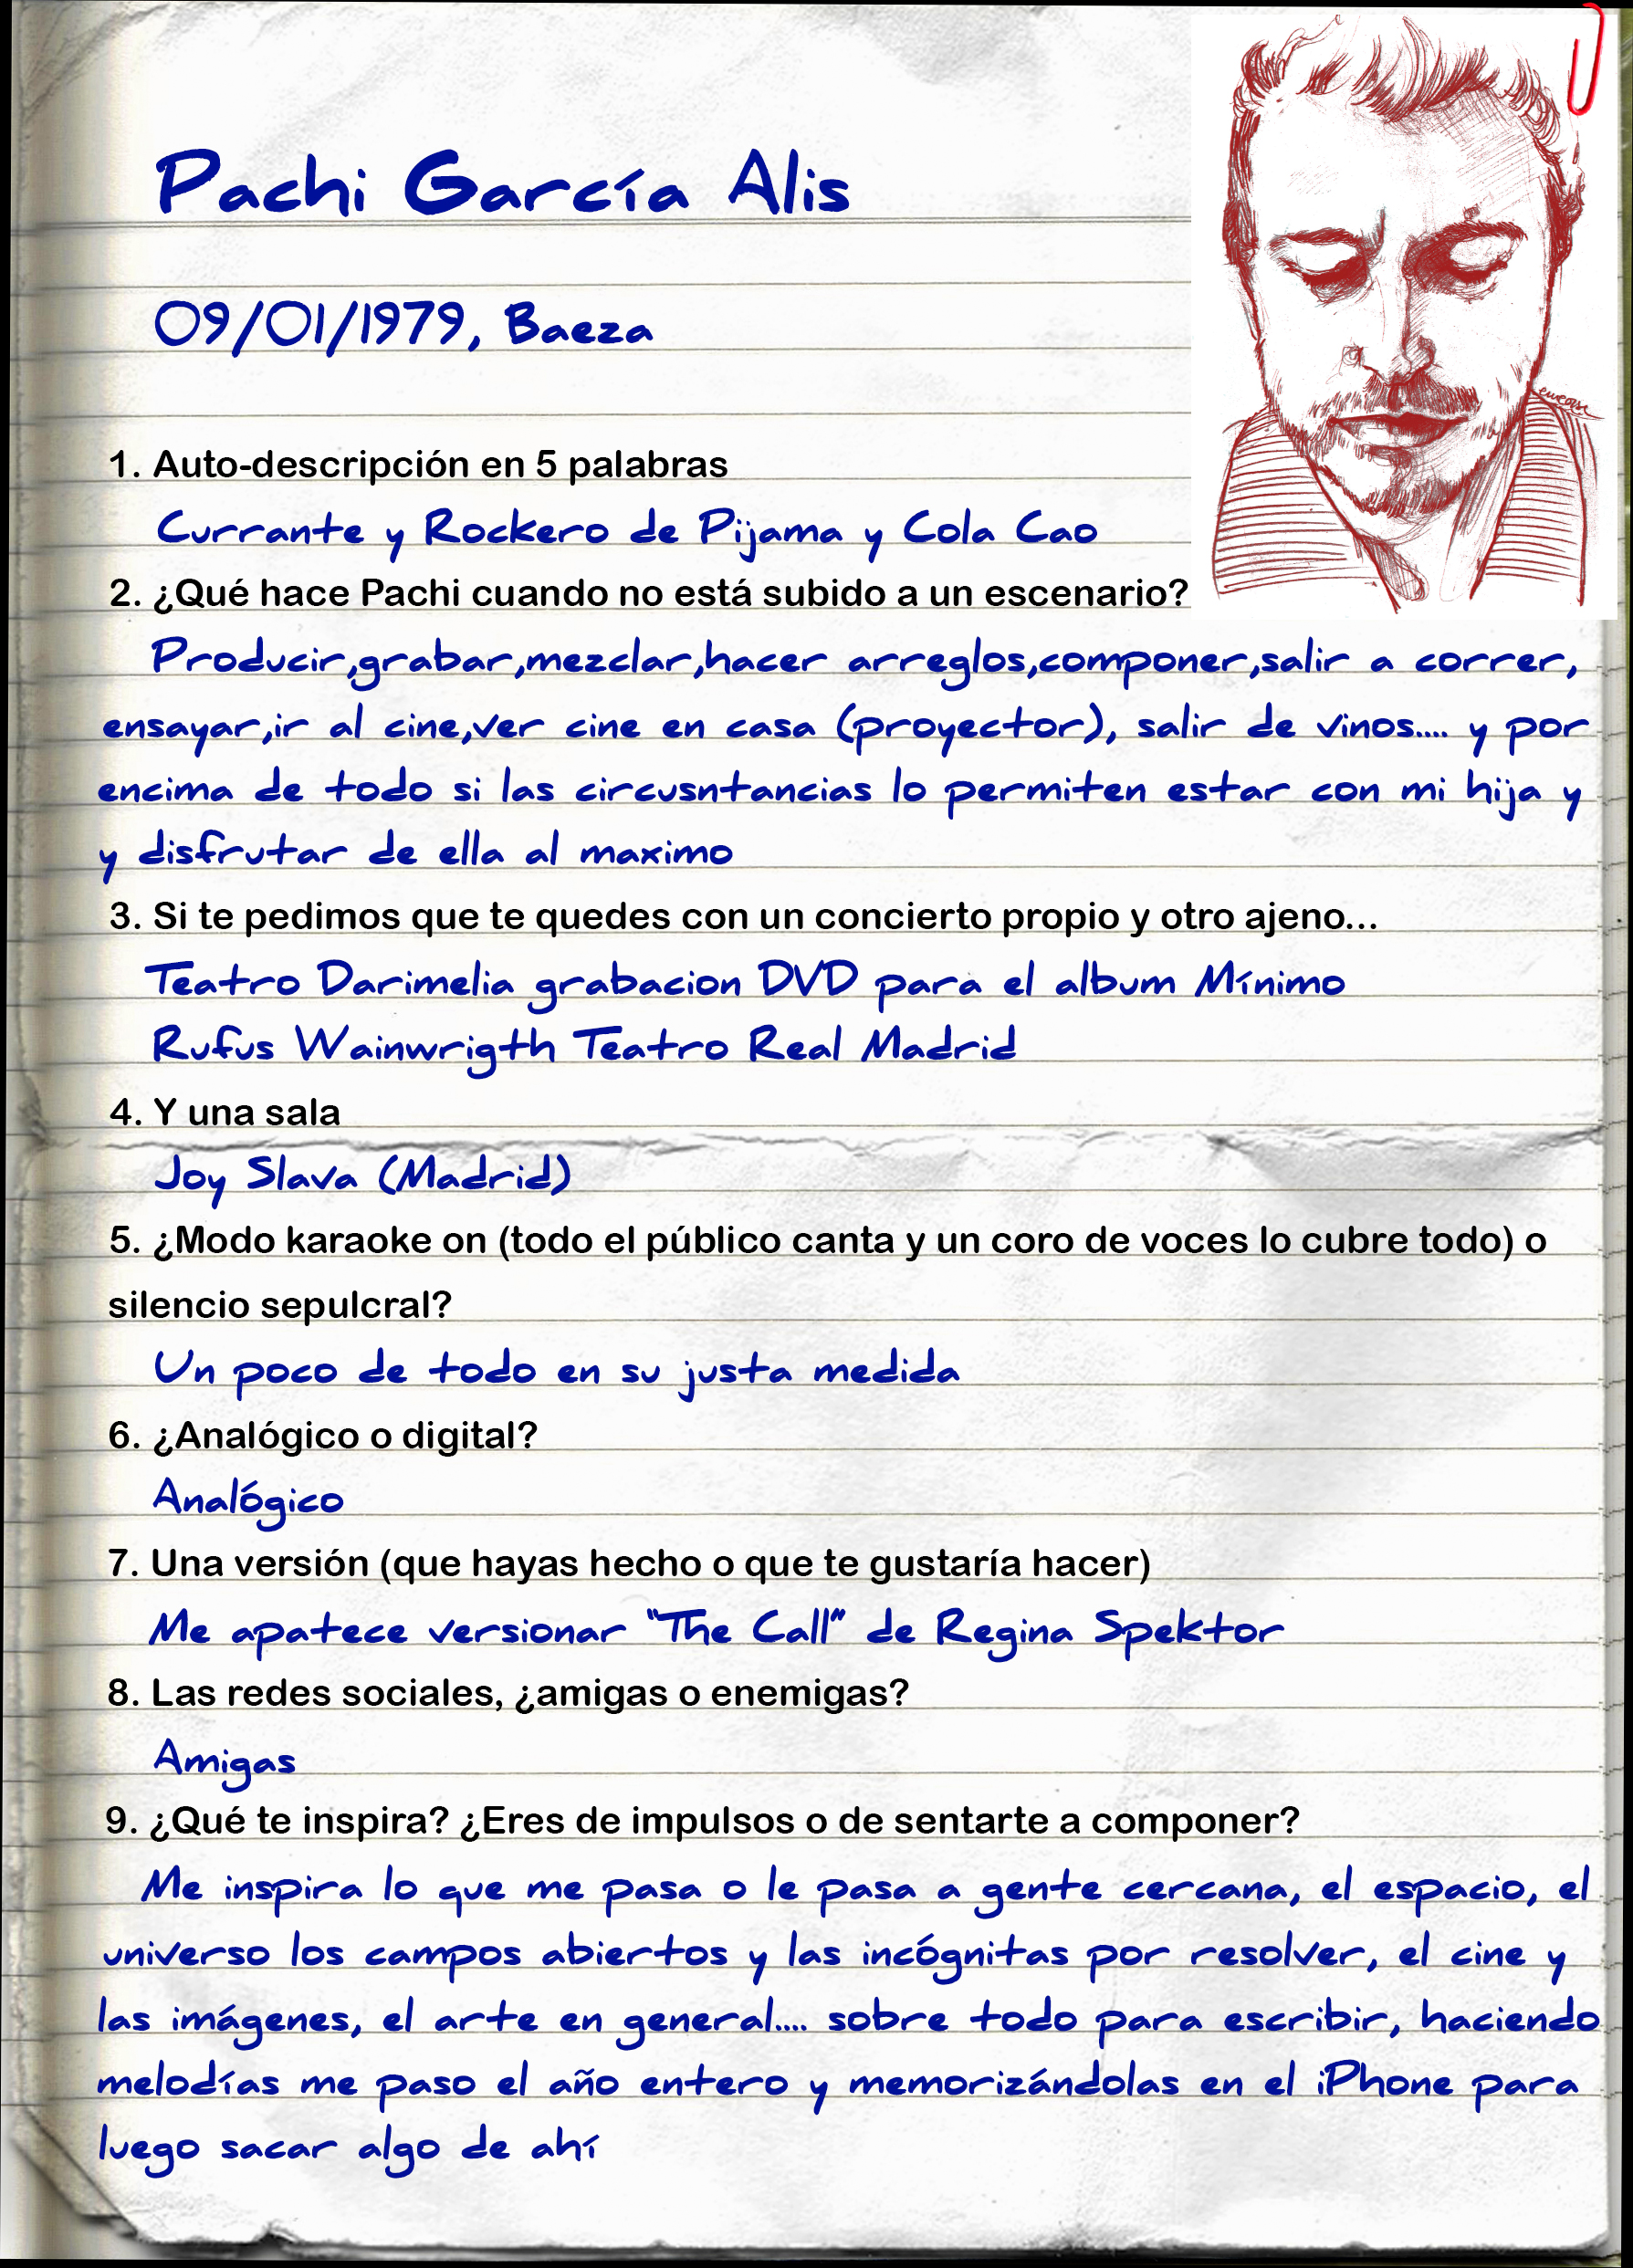 Pachi García Alis
09/01/1979, Baeza
1. Auto-descripción en 5 palabras
Currante y Rockero de Pijama y Cola Cao
2. ¿Qué hace Pachi cuando no está subido a un escenario?
Producir,grabar,mezclar,hacer arreglos,componer,salir a correr,
ensayar,ir al cine,ver cine en casa (proyector), salir de vinos.... y por
encima de todo si las circusntancias lo permiten estar con mi hija y
y disfrutar de ella al maximo
3. Si te pedimos que te quedes con un concierto propio y otro ajeno...
Teatro Darimelia grabacion DVD para el album Mínimo
Rufus Wainwrigth Teatro Real Madrid
4. Y una sala
Joy Slava (Madrid)
5. ¿Modo karaoke on (todo el público canta y un coro de voces lo cubre todo) o
silencio sepulcral?
Un poco de todo en su justa medida
6. ¿Analógico o digital?
Analógico
7. Una versión (que hayas hecho o que te gustaría hacer)
Me apatece versionar "The Call" de Regina Spektor
8. Las redes sociales, ¿amigas o enemigas?
Amigas
9. ¿Qué te inspira? ¿Eres de impulsos o de sentarte a componer?
Me inspira lo que me pasa o le pasa a gente cercana, el espacio, el
universo los campos abiertos y las incógnitas por resolver, el cine y
las imágenes, el arte en general.... sobre todo para escribir, haciendo
melodías me paso el año entero y memorizándolas en el iPhone para
luego sacar algo de ahí